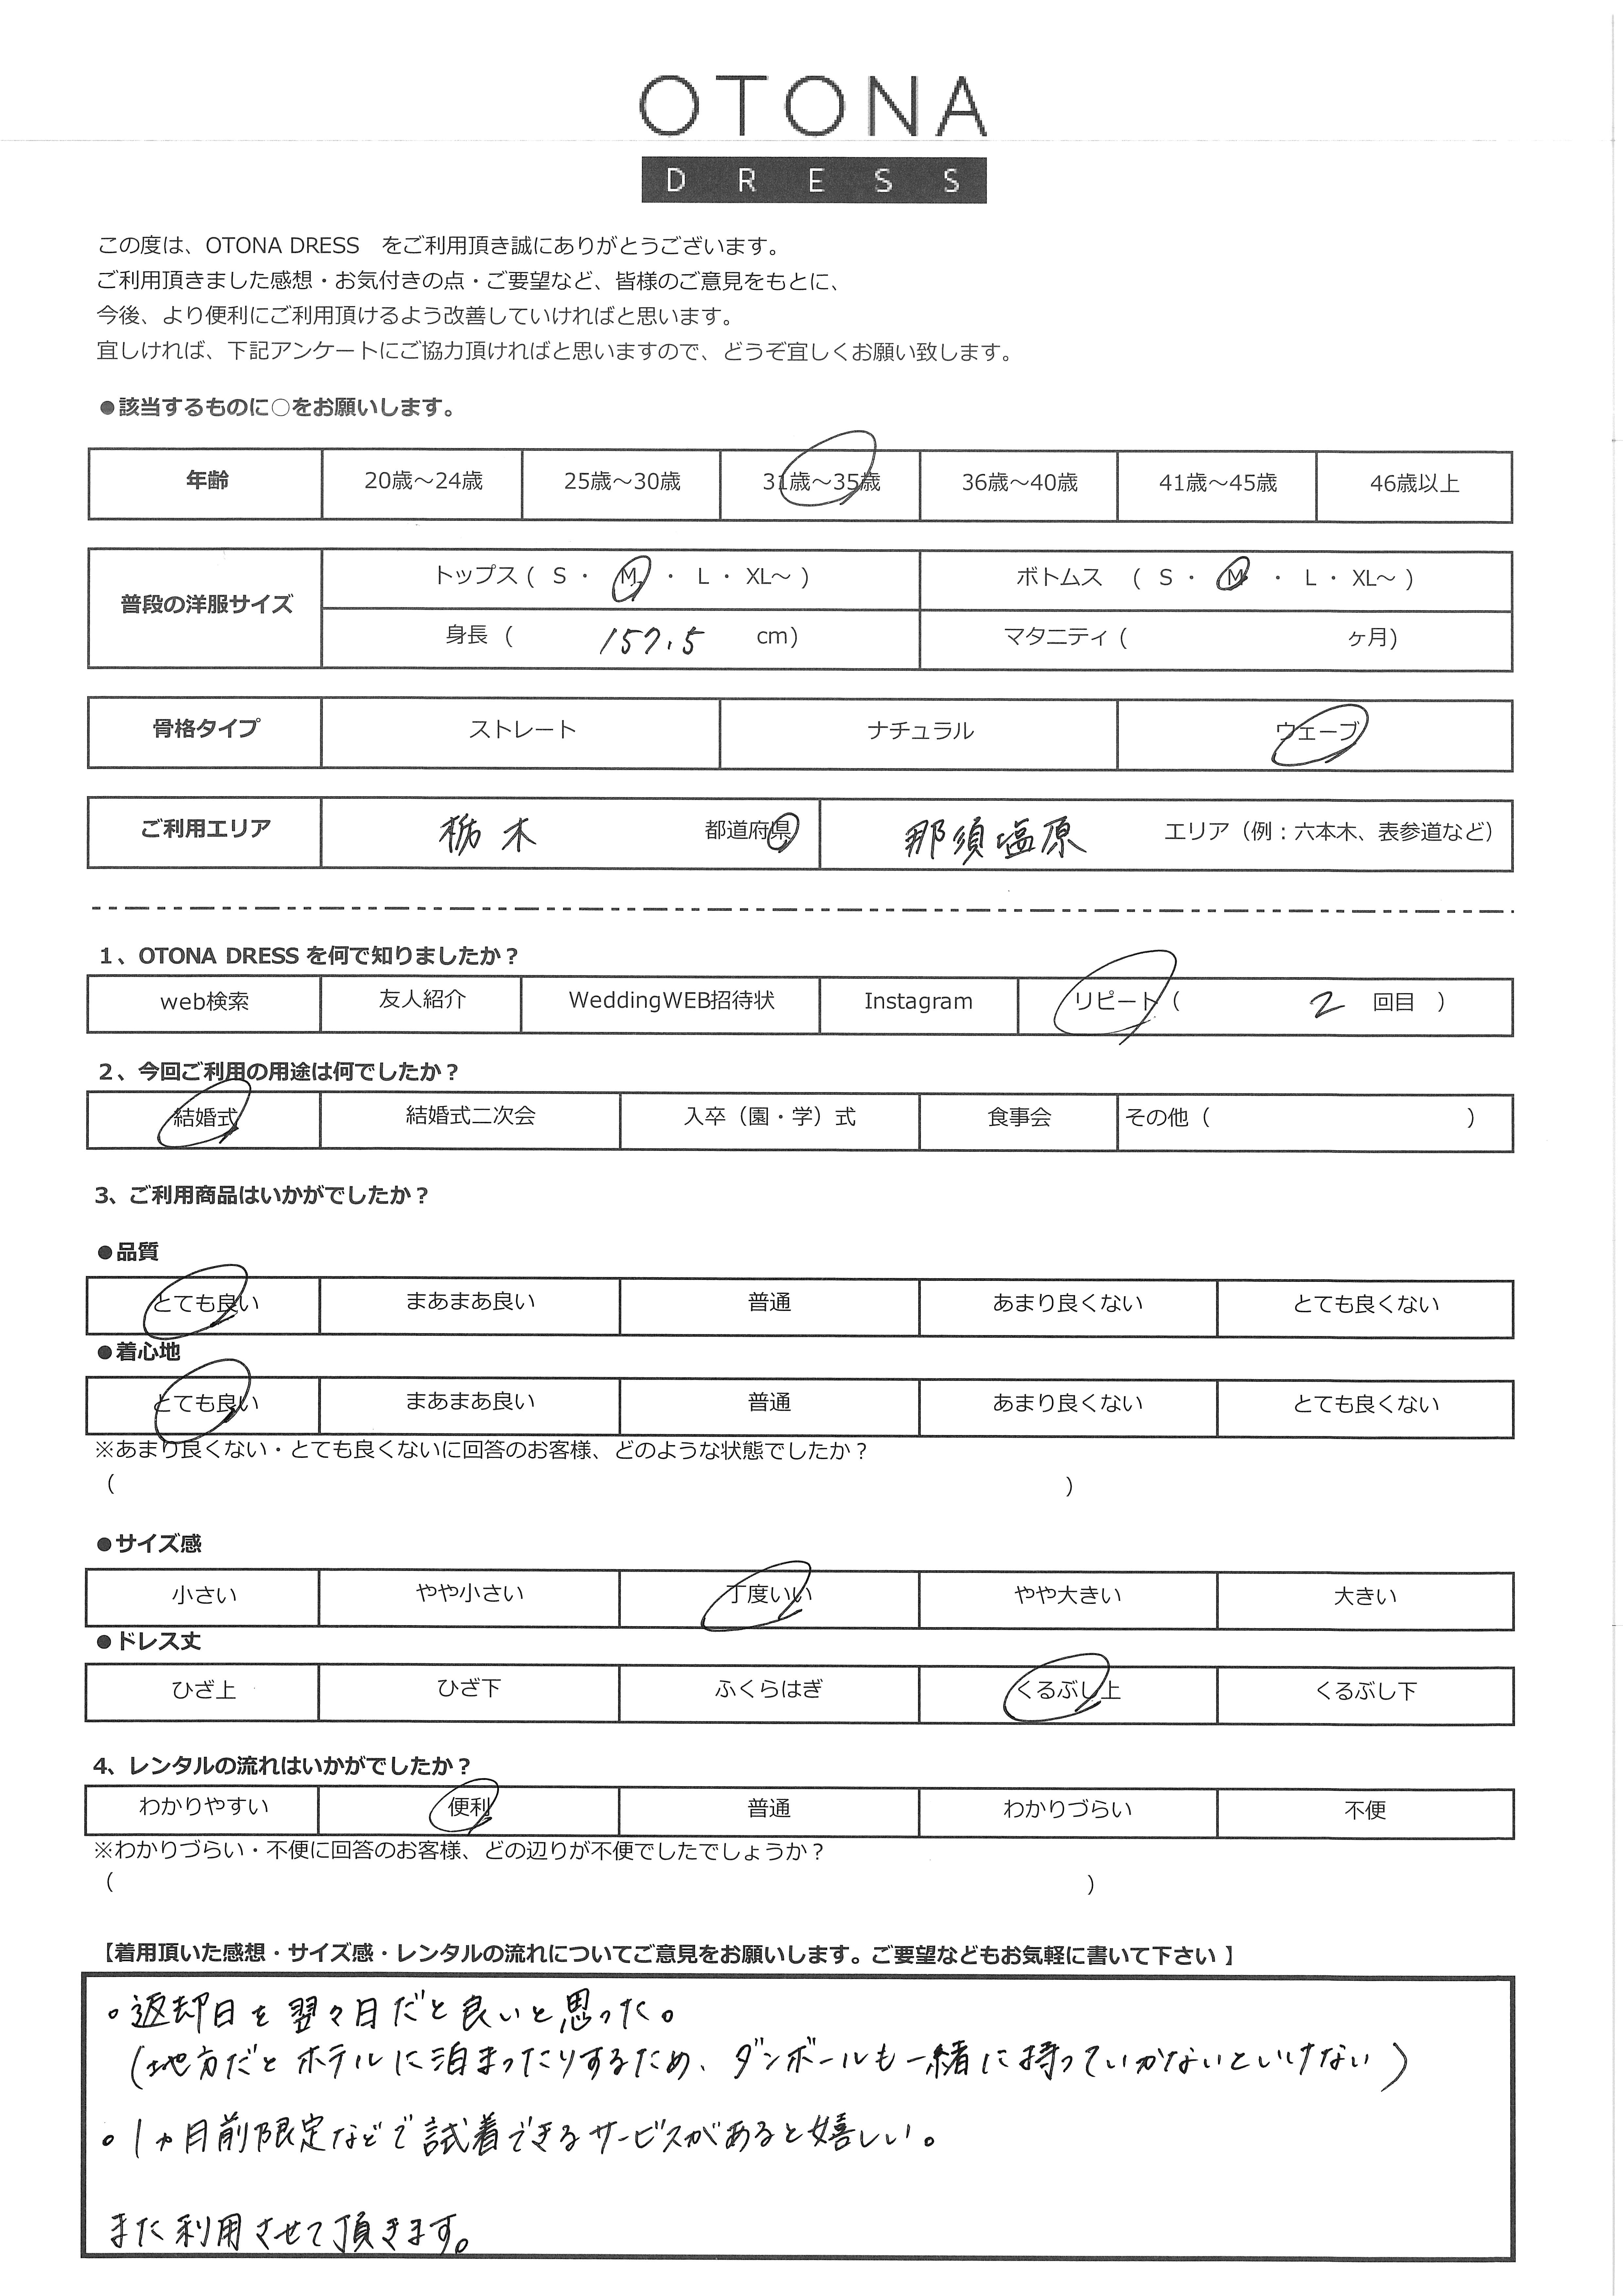 OTONA
DRESS
この度は、OTONA DRESS　をご利用頂き誠にありがとうございます。
ご利用頂きました感想・お気付きの点・ご要望など、皆様のご意見をもとに、
今後、より便利にご利用頂けるよう改善していければと思います。
宜しければ、下記アンケートにご協力頂ければと思いますので、どうぞ宜しくお願い致します。
●該当するものに○をお願いします。
年齢 20歳～24歳 25歳～30歳 31歳～35歳 36歳～40歳 41歳～45歳 46歳以上
普段の洋服サイズ
トップス ( S ・ M ・ L ・ XL～ ) ボトムス ( S ・ M ・ L ・ XL～ )
身長 ( 157.5 cm) マタニティ ( ヶ月)
骨格タイプ ストレート ナチュラル ウェーブ
ご利用エリア 栃木 都道府県 那須塩原 エリア（例：六本木、表参道など）
1、OTONA DRESS を何で知りましたか？
web検索 友人紹介 WeddingWEB招待状 Instagram リピート（ 2 回目 ）
2、今回ご利用の用途は何でしたか？
結婚式 結婚式二次会 入卒（園・学）式 食事会 その他（ ）
3、ご利用商品はいかがでしたか？
●品質
とても良い まあまあ良い 普通 あまり良くない とても良くない
●着心地
とても良い まあまあ良い 普通 あまり良くない とても良くない
※あまり良くない・とても良くないに回答のお客様、どのような状態でしたか？
（ ）
●サイズ感
小さい やや小さい 丁度いい やや大きい 大きい
●ドレス丈
ひざ上 ひざ下 ふくらはぎ くるぶし上 くるぶし下
4、レンタルの流れはいかがでしたか？
わかりやすい 便利 普通 わかりづらい 不便
※わかりづらい・不便に回答のお客様、どの辺りが不便でしたでしょうか？
（ ）
【着用頂いた感想・サイズ感・レンタルの流れについてご意見をお願いします。ご要望などもお気軽に書いて下さい 】
。返却日を翌々日だと良いと思った。
(地方だとホテルに泊まったりするため、ダンボールも一緒に持っていかないといけない)
。1ヵ月前限定などで試着できるサービスがあると嬉しい。
また利用させて頂きます。